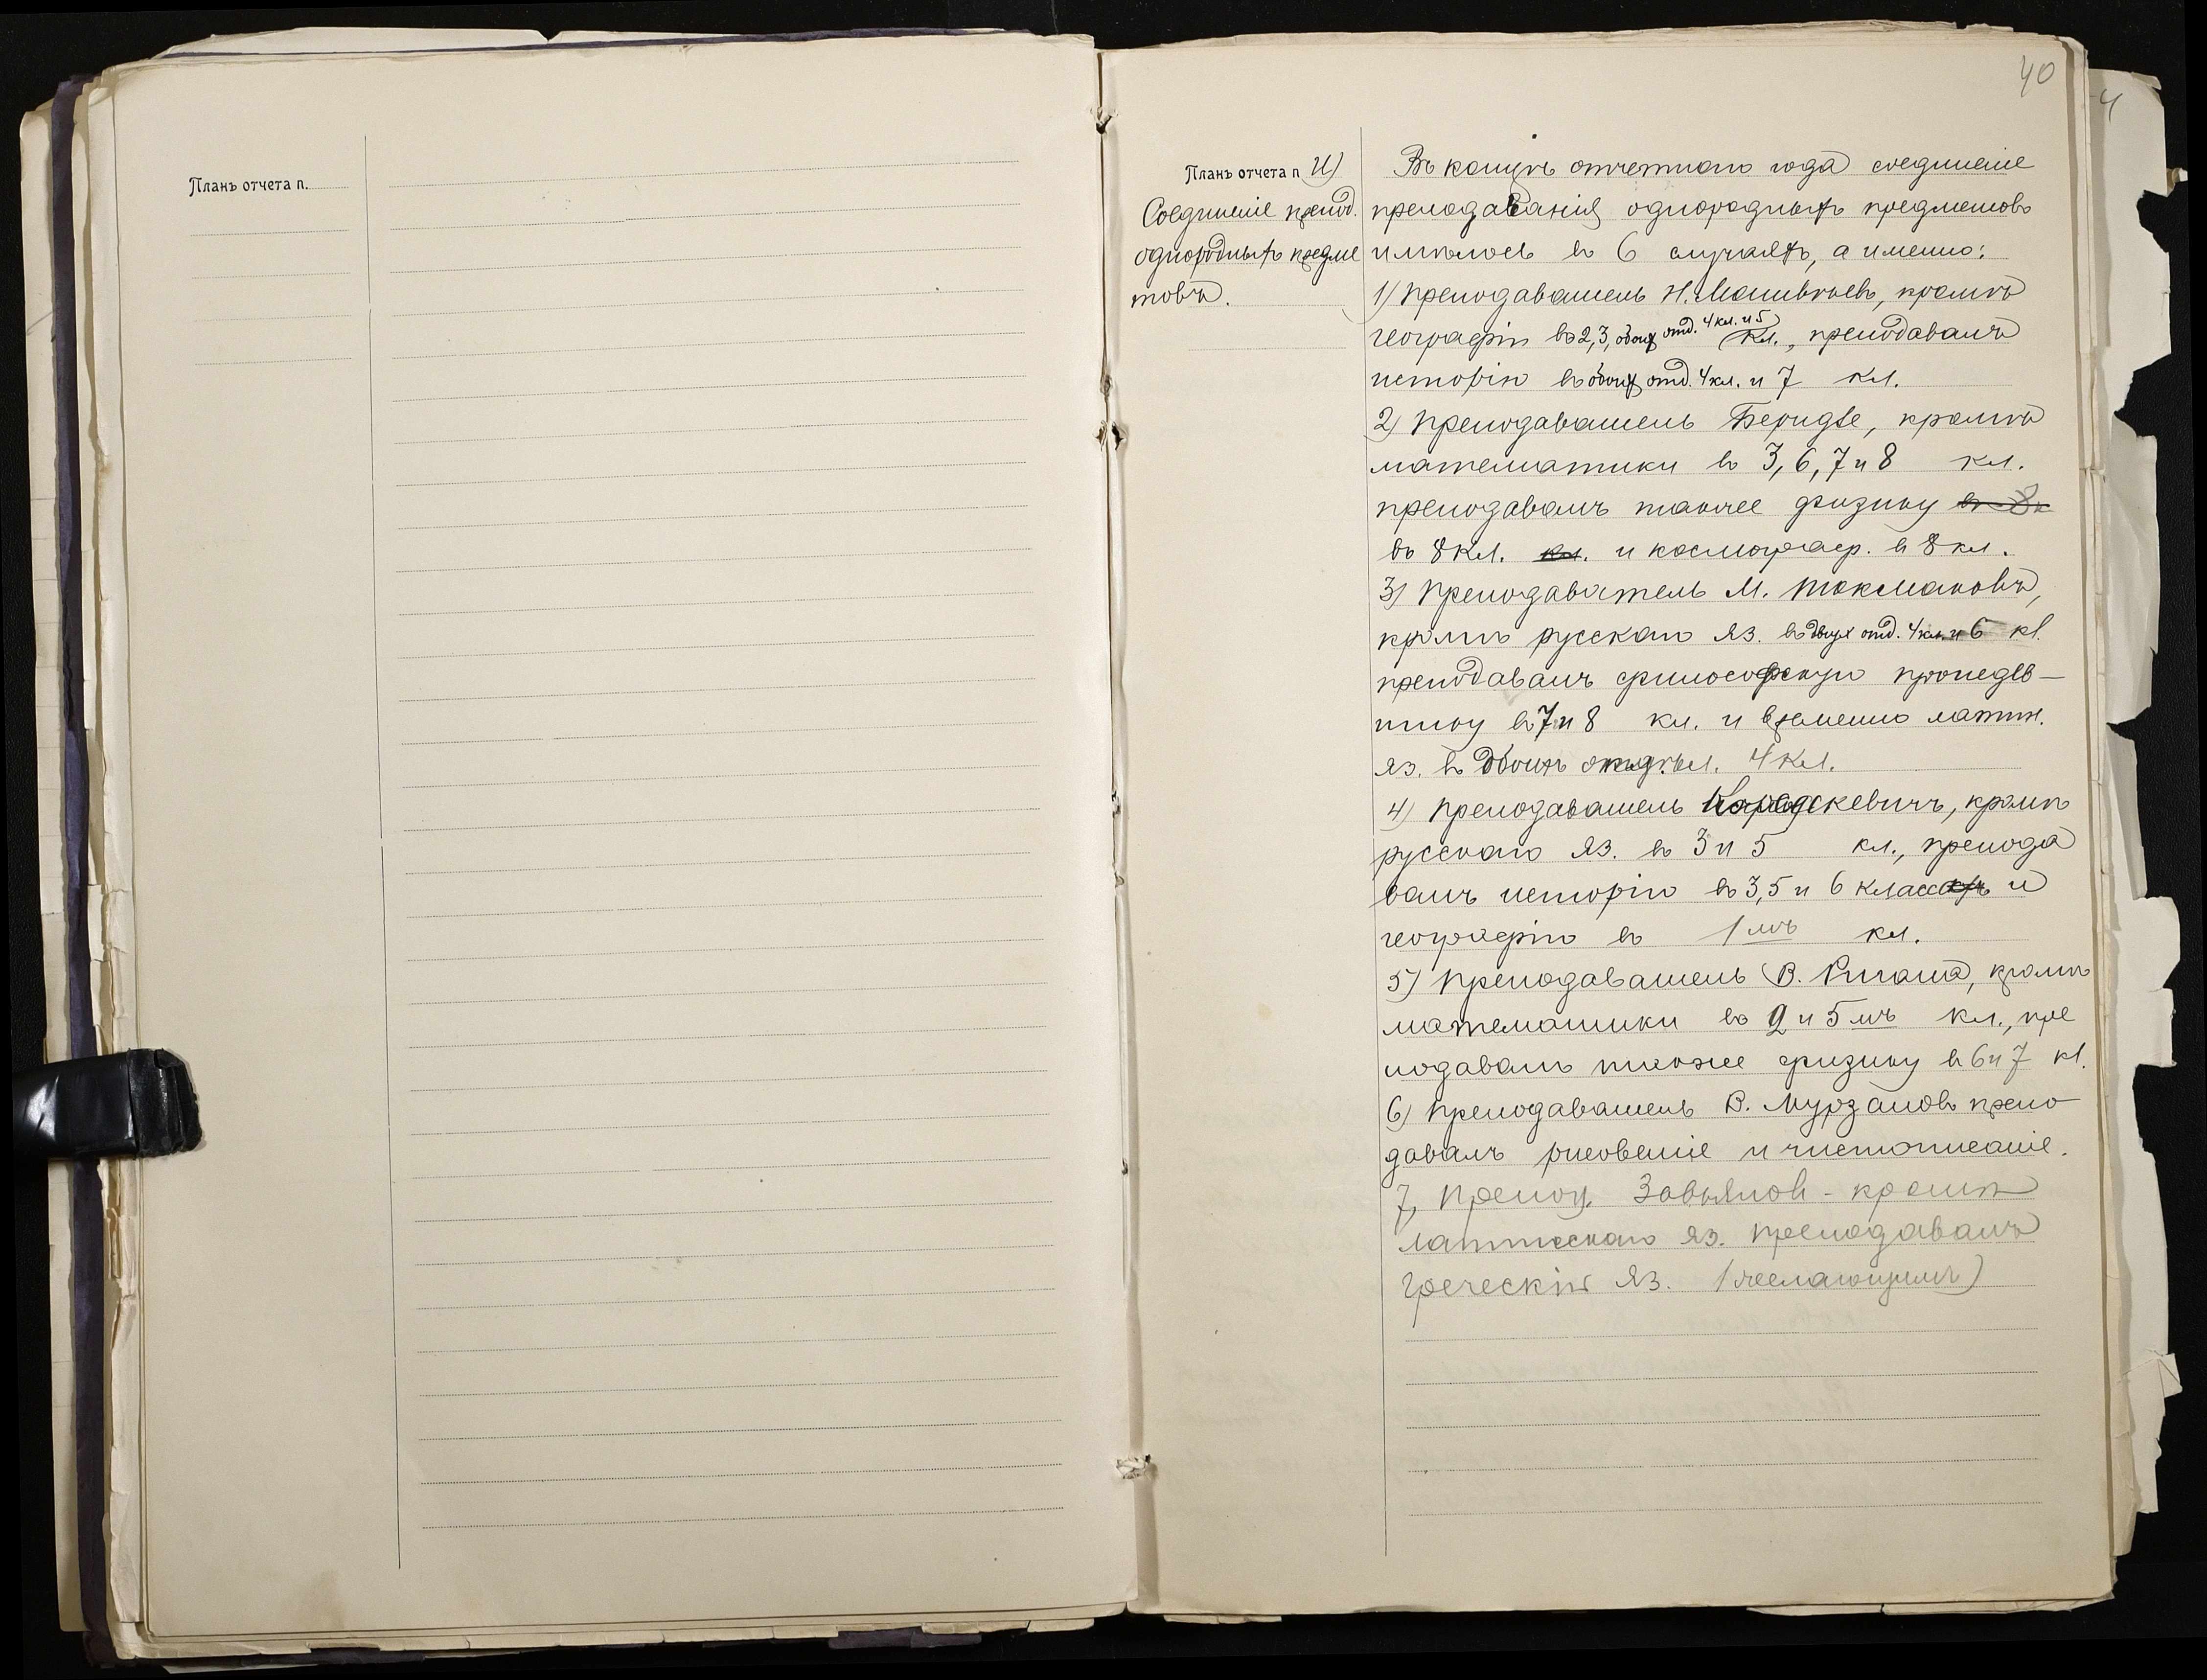 Планъ отчета п.
40
4
Планъ отчета п И)
Соединеніе препод.
однородныхъ предме
товъ.
Въ концѣ отчетнаго года соединеніе
преподаванія однородныхъ предметовъ
имѣлось въ 6 случаяхъ, а именно:
1) Преподаватель Н. Матвѣевъ, кромѣ
географіи въ 2, 3, обоихъ отд. 4 кл. и 5 кл., преподавалъ
исторію въ обоихъ отд. 4 кл. и 7 кл.
2) Преподаватель Беридзе, кромѣ
математики въ 3, 6, 7 и 8 кл.
преподавалъ также физику въ 8 к
въ 8 кл. кл. и космограф. въ 8 кл.
3) Преподаватель М. Токмаковъ,
кромѣ русскаго яз. въ двухъ отд. 4 кл. и 6 кл.
преподавалъ философскую пропедев-
тику въ 7 и 8 кл. и временно латин.
яз. въ обоихъ отдѣл. 4 кл.
4) Преподаватель кромѣ
русскаго яз. въ 3 и 5 кл., препода
валъ исторію въ 3, 5 и 6 классахъ и
географію въ 1 мъ кл.
5) Преподаватель В. кромѣ
математики въ 2 и 5 мъ кл., пре
подавалъ также физику въ 6 и 7 кл.
6) Преподаватель В. Мурзановъ препо
давалъ рисованіе и чистописаніе.
7, Препод. Завьялов - кромѣ
латинскаго яз. преподавалъ
греческій яз. (желающимъ)